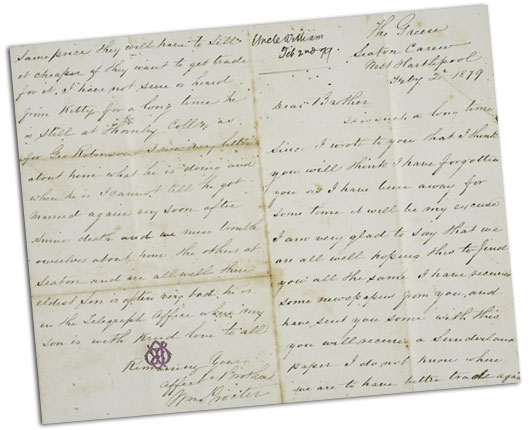 Uncle William
Feb 2nd 79.
The Green
Seaton Carew
West Hartlepool
Feby 2 1879
Dear Brother
it is such a long time
since I wrote to you that I think
you will think I have forgotten
you as I have been away for
some time it will be my excuse
I am very glad to say that we
are all well hoping this to find
you all the same I have received
some newspapers from you, and
have sent you some with this
you will receive a Sunderland
paper I do not know where
we are to have better trade again
same price they will have to sell
it cheaper if they want to get trade
for it. I have not seen or heard
from Kitty for a long time he
is still at Thornley Colly, as
for Geo Robinson I know very little
about him what he is doing and
where he is I cannot tell he got
married again very soon after
Annie death and we never trouble
ourselves about him the other at
Seaton and are all well there
eldest son is often very bad, he is
in the Telegraph Office where my
son is with kind love to all
Remaining Your
affect Brother
Wm